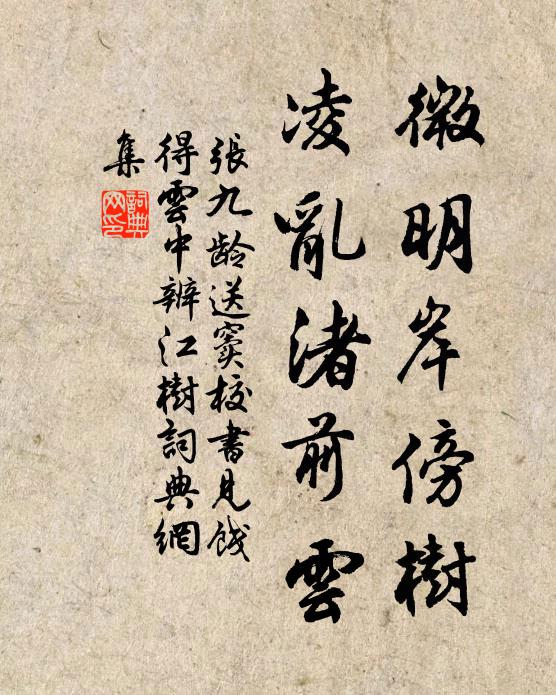 微明岸傍樹
凌亂渚前雲
張九龄送竇校書見餞
得雲中辨江樹詞典網
集
詞典
网印